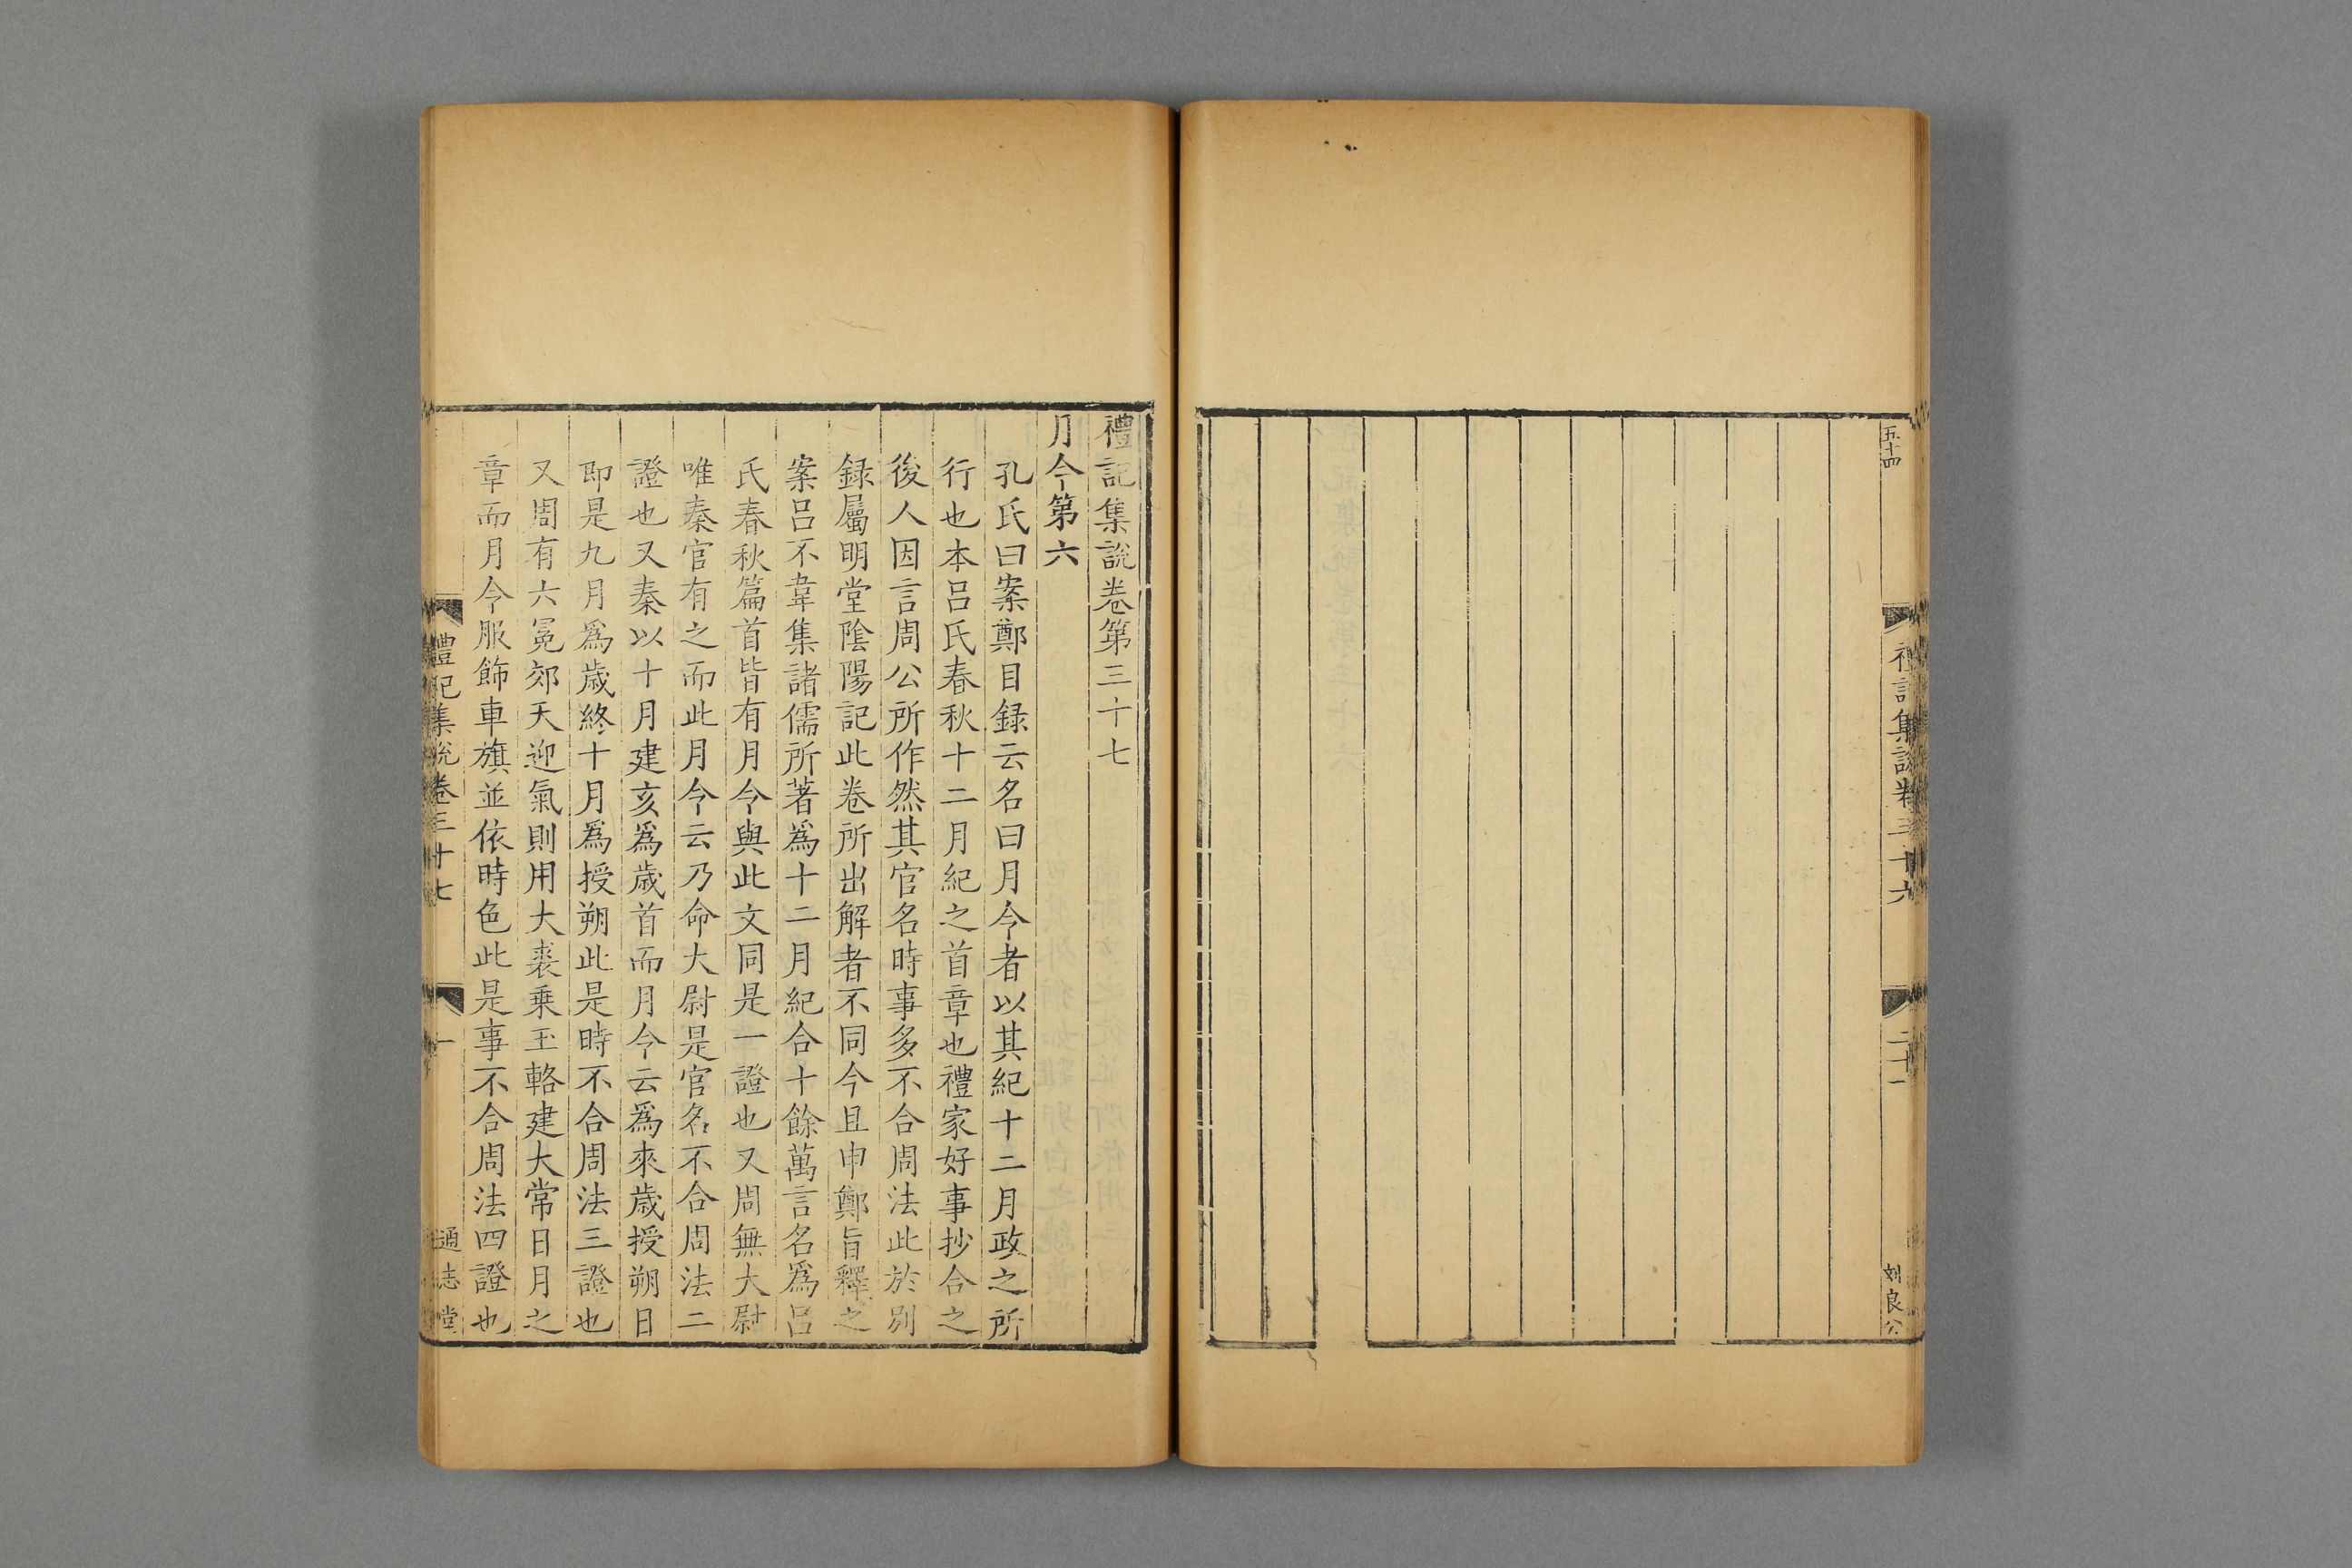 五十四
禮記集說卷三十六
二十一
刘良公
禮記集說卷第三十七
月令第六
孔氏曰案鄭目録云名曰月令者以其紀十二月政之所
行也本呂氏春秋十二月紀之首章也禮家好事抄合之
後人因言周公所作然其官名時事多不合周法此於別
録屬明堂陰陽記此卷所出解者不同今且申鄭旨釋之
案呂不韋集諸儒所著為十二月紀合十餘萬言名爲呂
氏春秋篇首皆有月令與此文同是一證也又周無大尉
唯秦官有之而此月令云乃命大尉是官名不合周法二
證也又秦以十月建亥爲歳首而月令云爲來歳授朔日
即是九月爲歳終十月爲授朔此是時不合周法三證也
又周有六冕郊天迎氣則用大裘乗玉輅建大常日月之
章而月令服飾車旗並依時色此是事不合周法四證也
禮記集說卷三十七
一
通志堂